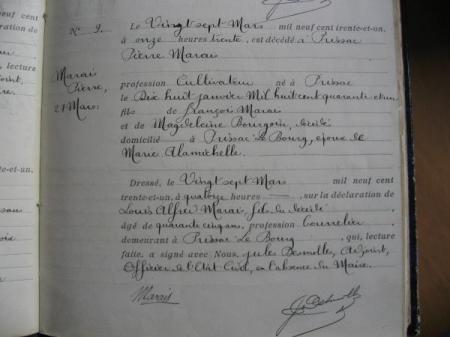 N° 9.
Marais
Pierre,
27 Mars.
Le Vingt sept Mars mil neuf cent trente-et-un,
à onze heures trente, est décédé à Prissac
Pierre Marais
profession Cultivateur né à Prissac
le Dix huit janvier Mil huit cent quarante et un
fils de françois Marais
et de Magdeleine Bourgoin, décédés
domicilié à Prissac Le Bourg, époux de
Marie Alamichelle.
Dressé, le Vingt sept Mars mil neuf cent
trente-et-un, à quatorze heures, sur la déclaration de
Louis Alfred Marais, fils du décédé
âgé de quarante cinq ans, profession Bourrelier
demeurant à Prissac Le Bourg, qui, lecture
faite, a signé avec Nous, Jules Adjoint,
Officier de l'Etat Civil, en l'absence du Maire.
Marais